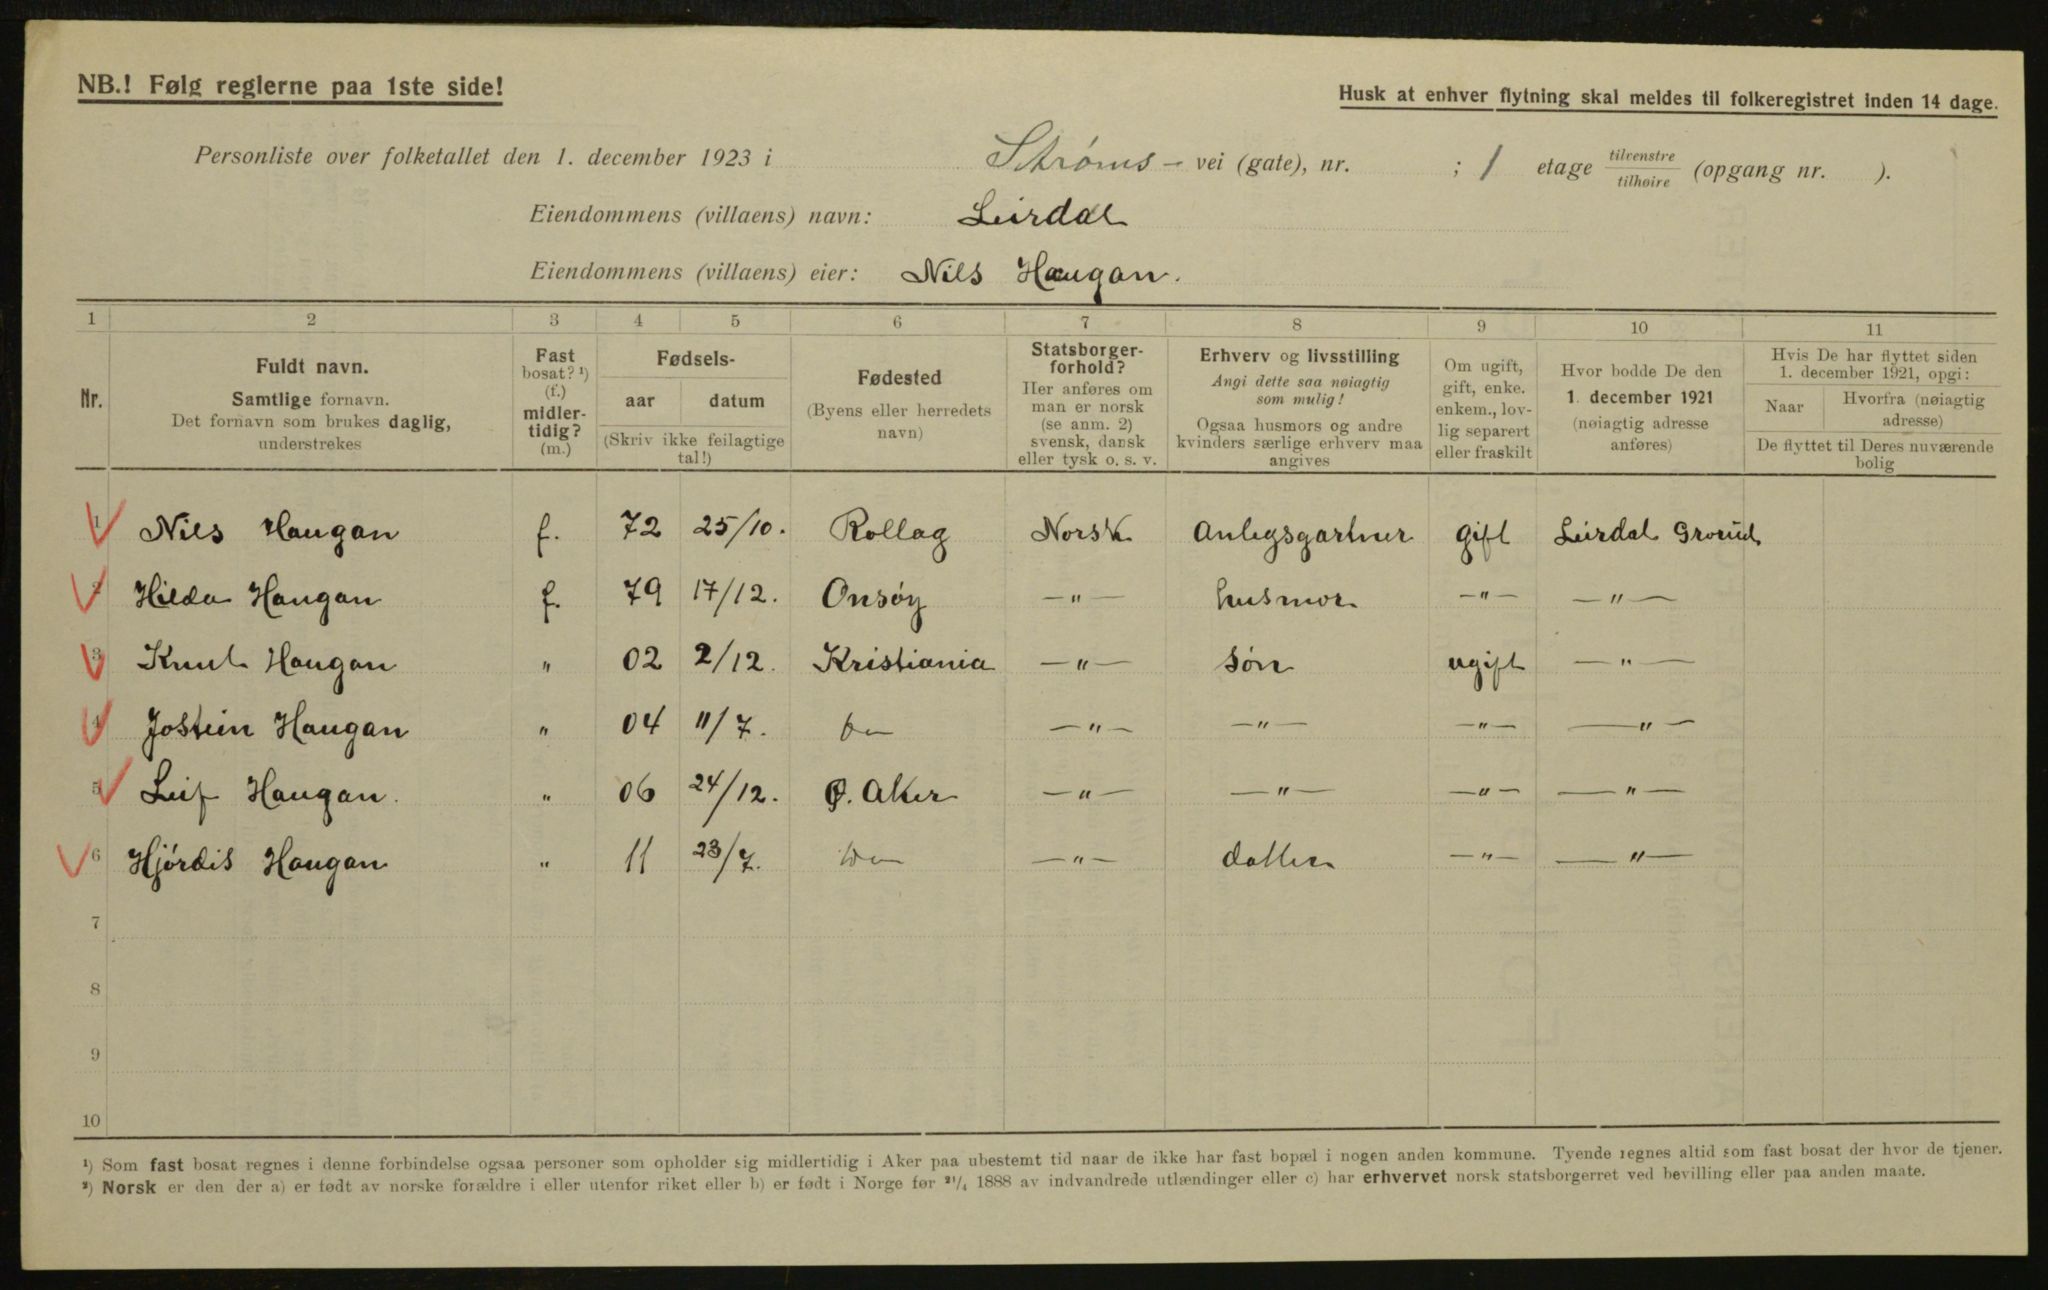 NB.! Følg reglerne paa 1ste side!
Husk at enhver flytning skal meldes til folkeregistret inden 14 dage.
Personliste over folketallet den 1. december 1923 i Strøms- vei (gate), nr. ; 1 etage tilvenstre/tilhøire (opgang nr. ).
Eiendommens (villaens) navn: Leirdal
Eiendommens (villaens) eier: Nils Haugan.
1 2 3 4 5 6 7 8 9 10 11
Nr.
Fuldt navn.
Samtlige fornavn.
Det fornavn som brukes daglig,
understrekes
Fast
bosat? ¹)
(f.)
midler-
tidig?
(m.)
Fødsels-
aar datum
(Skriv ikke feilagtige
tal!)
Fødested
(Byens eller herredets
navn)
Statsborger-
forhold?
Her anføres om
man er norsk
(se anm. 2)
svensk, dansk
eller tysk o. s. v.
Erhverv og livsstilling
Angi dette saa nøiagtig
som mulig!
Ogsaa husmors og andre
kvinders særlige erhverv maa
angives
Om ugift,
gift, enke.
enkem., lov-
lig separert
eller fraskilt
Hvor bodde De den
1. december 1921
(nøiagtig adresse
anføres)
Hvis De har flyttet siden
1. december 1921, opgi:
Naar
Hvorfra (nøiagtig
adresse)
De flyttet til Deres nuværende
bolig
1 Nils Haugan f. 72 25/10. Rollag Norsk Anlegsgartner gift Leirdal Grorud
2 Hilda Haugan f. 79 17/12. Onsöy —"— husmor —"— —"—
3 Knut Haugan " 02 2/12. Kristiania —"— søn ugift —"—
4 Jostein Haugan " 04 11/7. do —"— —"— —"— —"—
5 Leif Haugan. " 06 24/12. Ø. Aker —"— —"— —"— —"—
6 Hjördis Haugan " 11 23/7. do —"— datter —"— —"—
7
8
9
10
¹) Som fast bosat regnes i denne forbindelse ogsaa personer som opholder sig midlertidig i Aker paa ubestemt tid naar de ikke har fast bopæl i nogen anden kommune. Tyende regnes altid som fast bosat der hvor de tjener.
²) Norsk er den der a) er født av norske forældre i eller utenfor riket eller b) er født i Norge før ²¹/₄ 1888 av indvandrede utlændinger eller c) har erhvervet norsk statsborgerret ved bevilling eller paa anden maate.